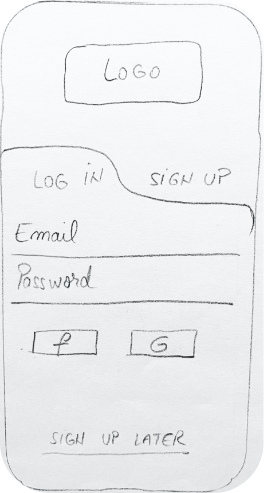 LOGO
LOG IN SIGN UP
Email
Password
f G
SIGN UP LATER